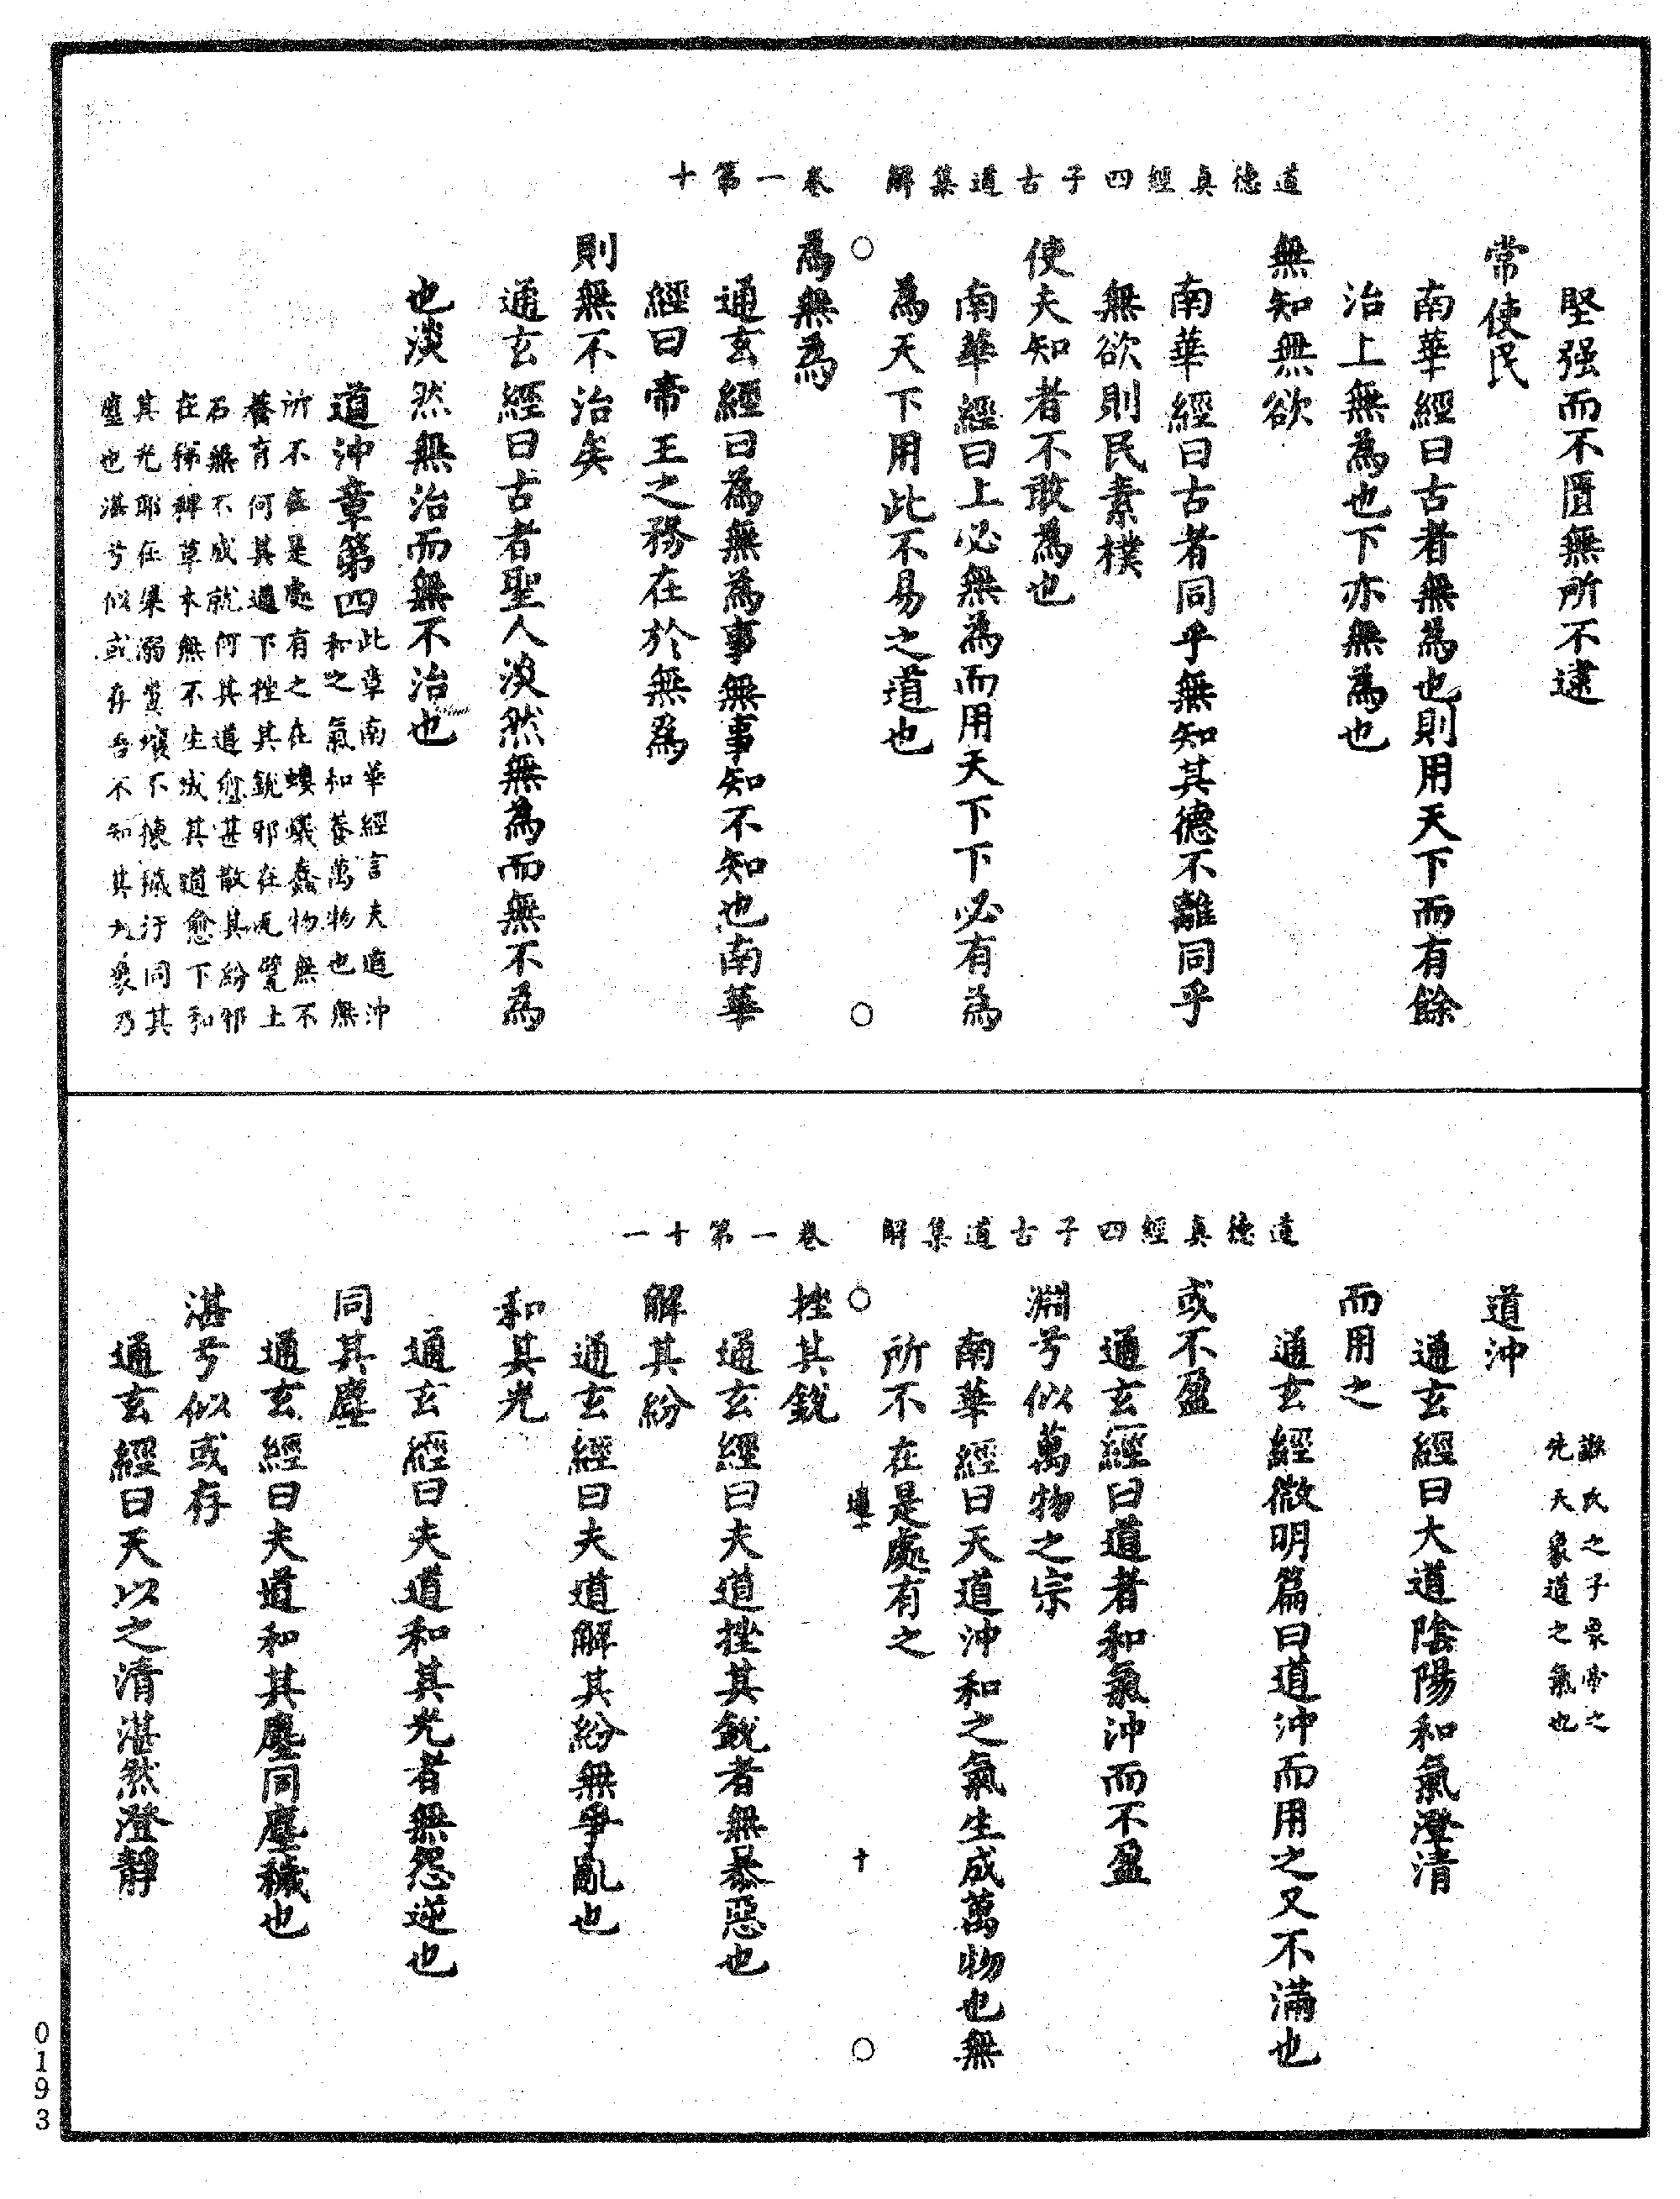 道德真經四子古道集解　卷一第十
堅强而不匱無所不逮
常使民
南華經曰古者無為也則用天下而有餘
治上無為也下亦無為也
無知無欲
南華經曰古者同乎無知其德不離同乎
無欲則民素樸
使夫知者不敢為也
南華經曰上必無為而用天下下必有為
為天下用此不易之道也
○
○
為無為
通玄經曰為無為事無事知不知也南華
經曰帝王之務在於無為
則無不治矣
通玄經曰古者聖人淡然無為而無不為
也淡然無治而無不治也
道沖章第四
此章南華經言夫道沖
和之氣和養萬物也無
所不在是處有之在螻蟻蠢物無不
養育何其道下挫其銳邪在瓦甓土
石無不成就何其道愈甚散其紛邪
在稊稗草木無不生成其道愈下和
其光耶在渠溺糞壤不揀穢汙同其
塵也湛兮似或存吾不知其大象乃
道德真經四子古道集解　卷一第十一
誰氏之子象帝之
先天象道之氣也
道沖
通玄經曰大道陰陽和氣澄清
而用之
通玄經微明篇曰道沖而用之又不滿也
或不盈
通玄經曰道者和氣沖而不盈
淵兮似萬物之宗
南華經曰天道沖和之氣生成萬物也無
所不在是處有之
○
十
○
挫其銳
通玄經曰夫道挫其銳者無暴惡也
解其紛
通玄經曰夫道解其紛無爭亂也
和其光
通玄經曰夫道和其光者無怨逆也
同其塵
通玄經曰夫道和其塵同塵穢也
湛兮似或存
通玄經曰天以之清湛然澄靜
0193